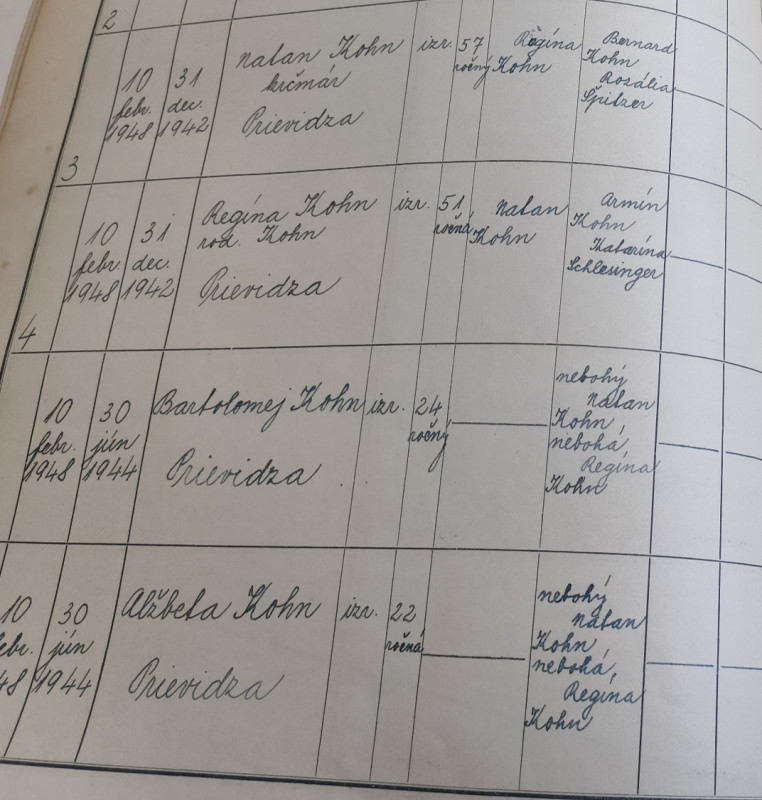 2
10
febr.
1948
31
dec.
1942
Natan Kohn
krčmár
Prievidza
izr.
57
ročný
Regína
Kohn
Bernard
Kohn
Rozália
Špitzer
3
10
febr.
1948
31
dec.
1942
Regína Kohn
rod. Kohn
Prievidza
izr.
51
ročná
Natan
Kohn
Armín
Kohn
Katarína
Schlesinger
4
10
febr.
1948
30
jún
1944
Bartolomej Kohn
Prievidza
izr.
24
ročný
nebohý
Natan
Kohn,
nebohá,
Regína
Kohn
10
febr.
48
30
jún
1944
Alžbeta Kohn
Prievidza
izr.
22
ročná
nebohý
Natan
Kohn,
nebohá,
Regína
Kohn